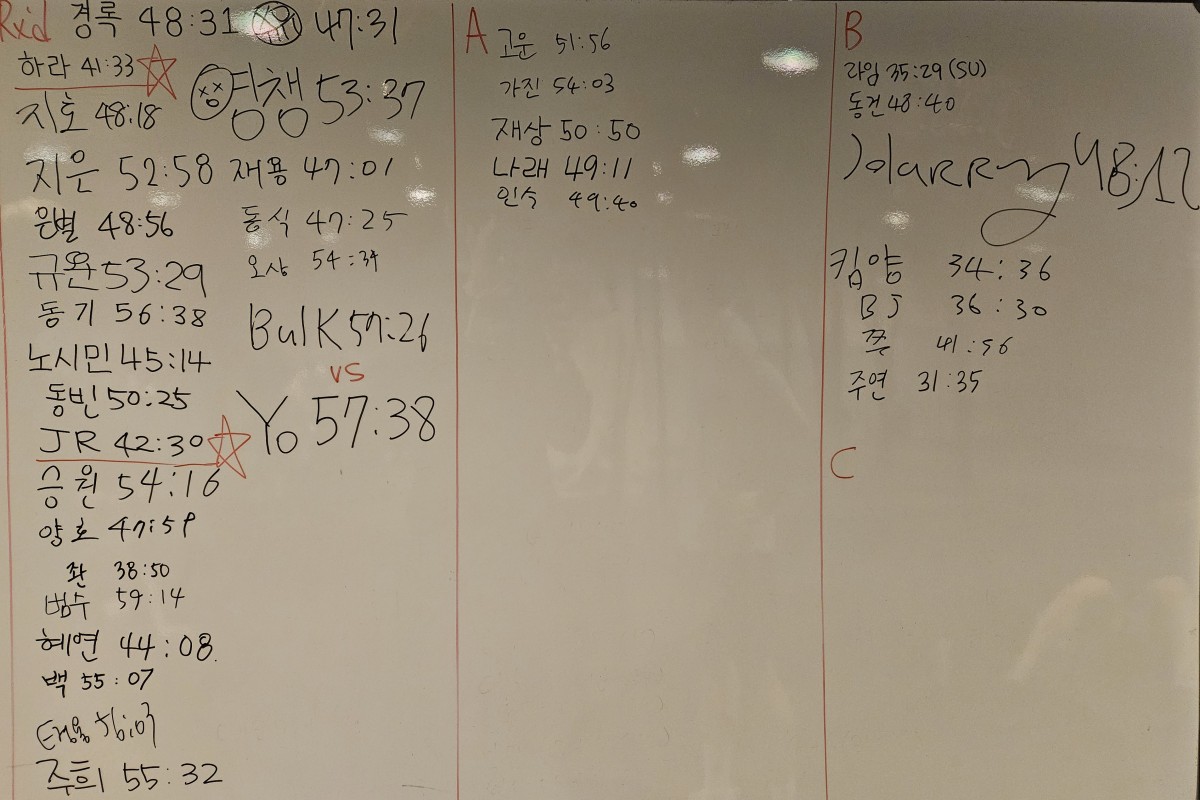 Rx'd
경록 48:31
47:31
하라 41:33
지호 48:18
영챙 53:37
지은 52:58
재용 47:01
은별 48:56
동식 47:25
규완 53:29
오상 54:34
동기 56:38
Bulk 57:26
노시민 45:14
vs
동빈 50:25
Yo 57:38
JR 42:30
승원 54:16
양호 47:59
좌 38:50
범수 59:14
혜연 44:08
백 55:07
태용 56:03
주희 55:32
A
고운 51:56
가진 54:03
재상 50:50
나래 49:11
인숙 49:40
B
라임 35:29 (SU)
동건 48:40
Harry 48:12
킴양 34:36
BJ 36:30
쯔 41:56
주연 31:35
C